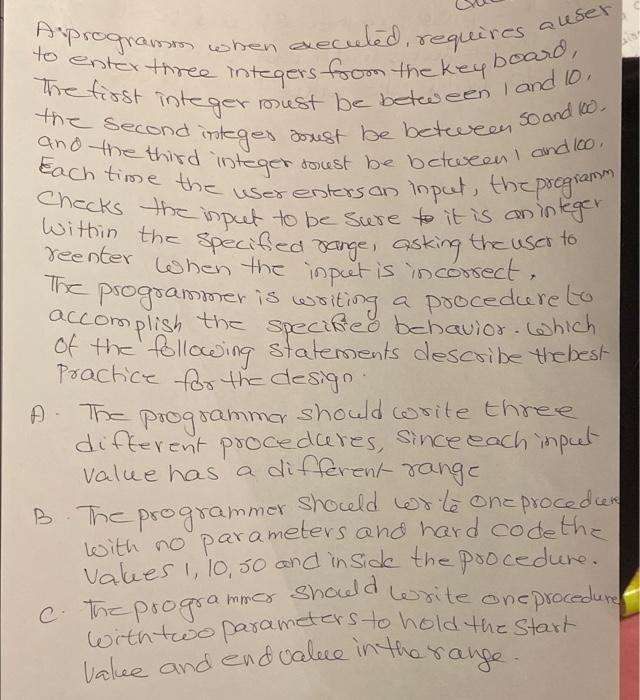 A programm when executed, requires a user
to enter three integers from the key board,
The first integer must be between 1 and 10,
the second integer must be between 50 and 100.
and the third integer must be between 1 and 100.
Each time the user enters an input, the programm
Checks the input to be sure it is an integer
Within the specified range, asking the user to
reenter when the input is incorrect,
The programmer is writing a procedure to
accomplish the specified behavior. Which
of the following statements describe the best
Practice for the design.
A. The programmer should write three
different procedures, since each input
value has a different range
B. The programmer should write one procedure
with no parameters and hard code the
values 1, 10, 50 and inside the procedure.
C. The programmer should write one procedure
with two parameters to hold the start
Value and end value in the range.